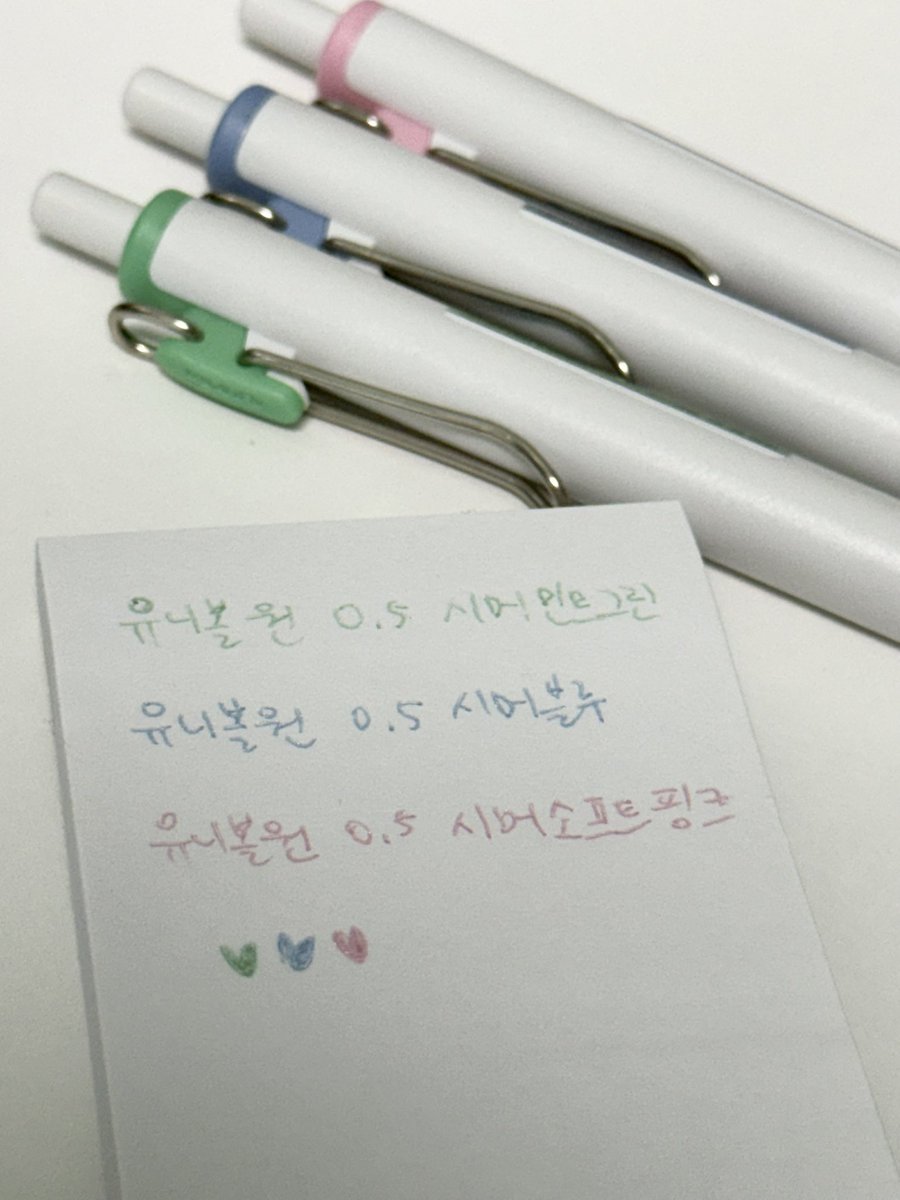 유니볼원 0.5 시머민트그린
유니볼원 0.5 시머블루
유니볼원 0.5 시머소프트핑크